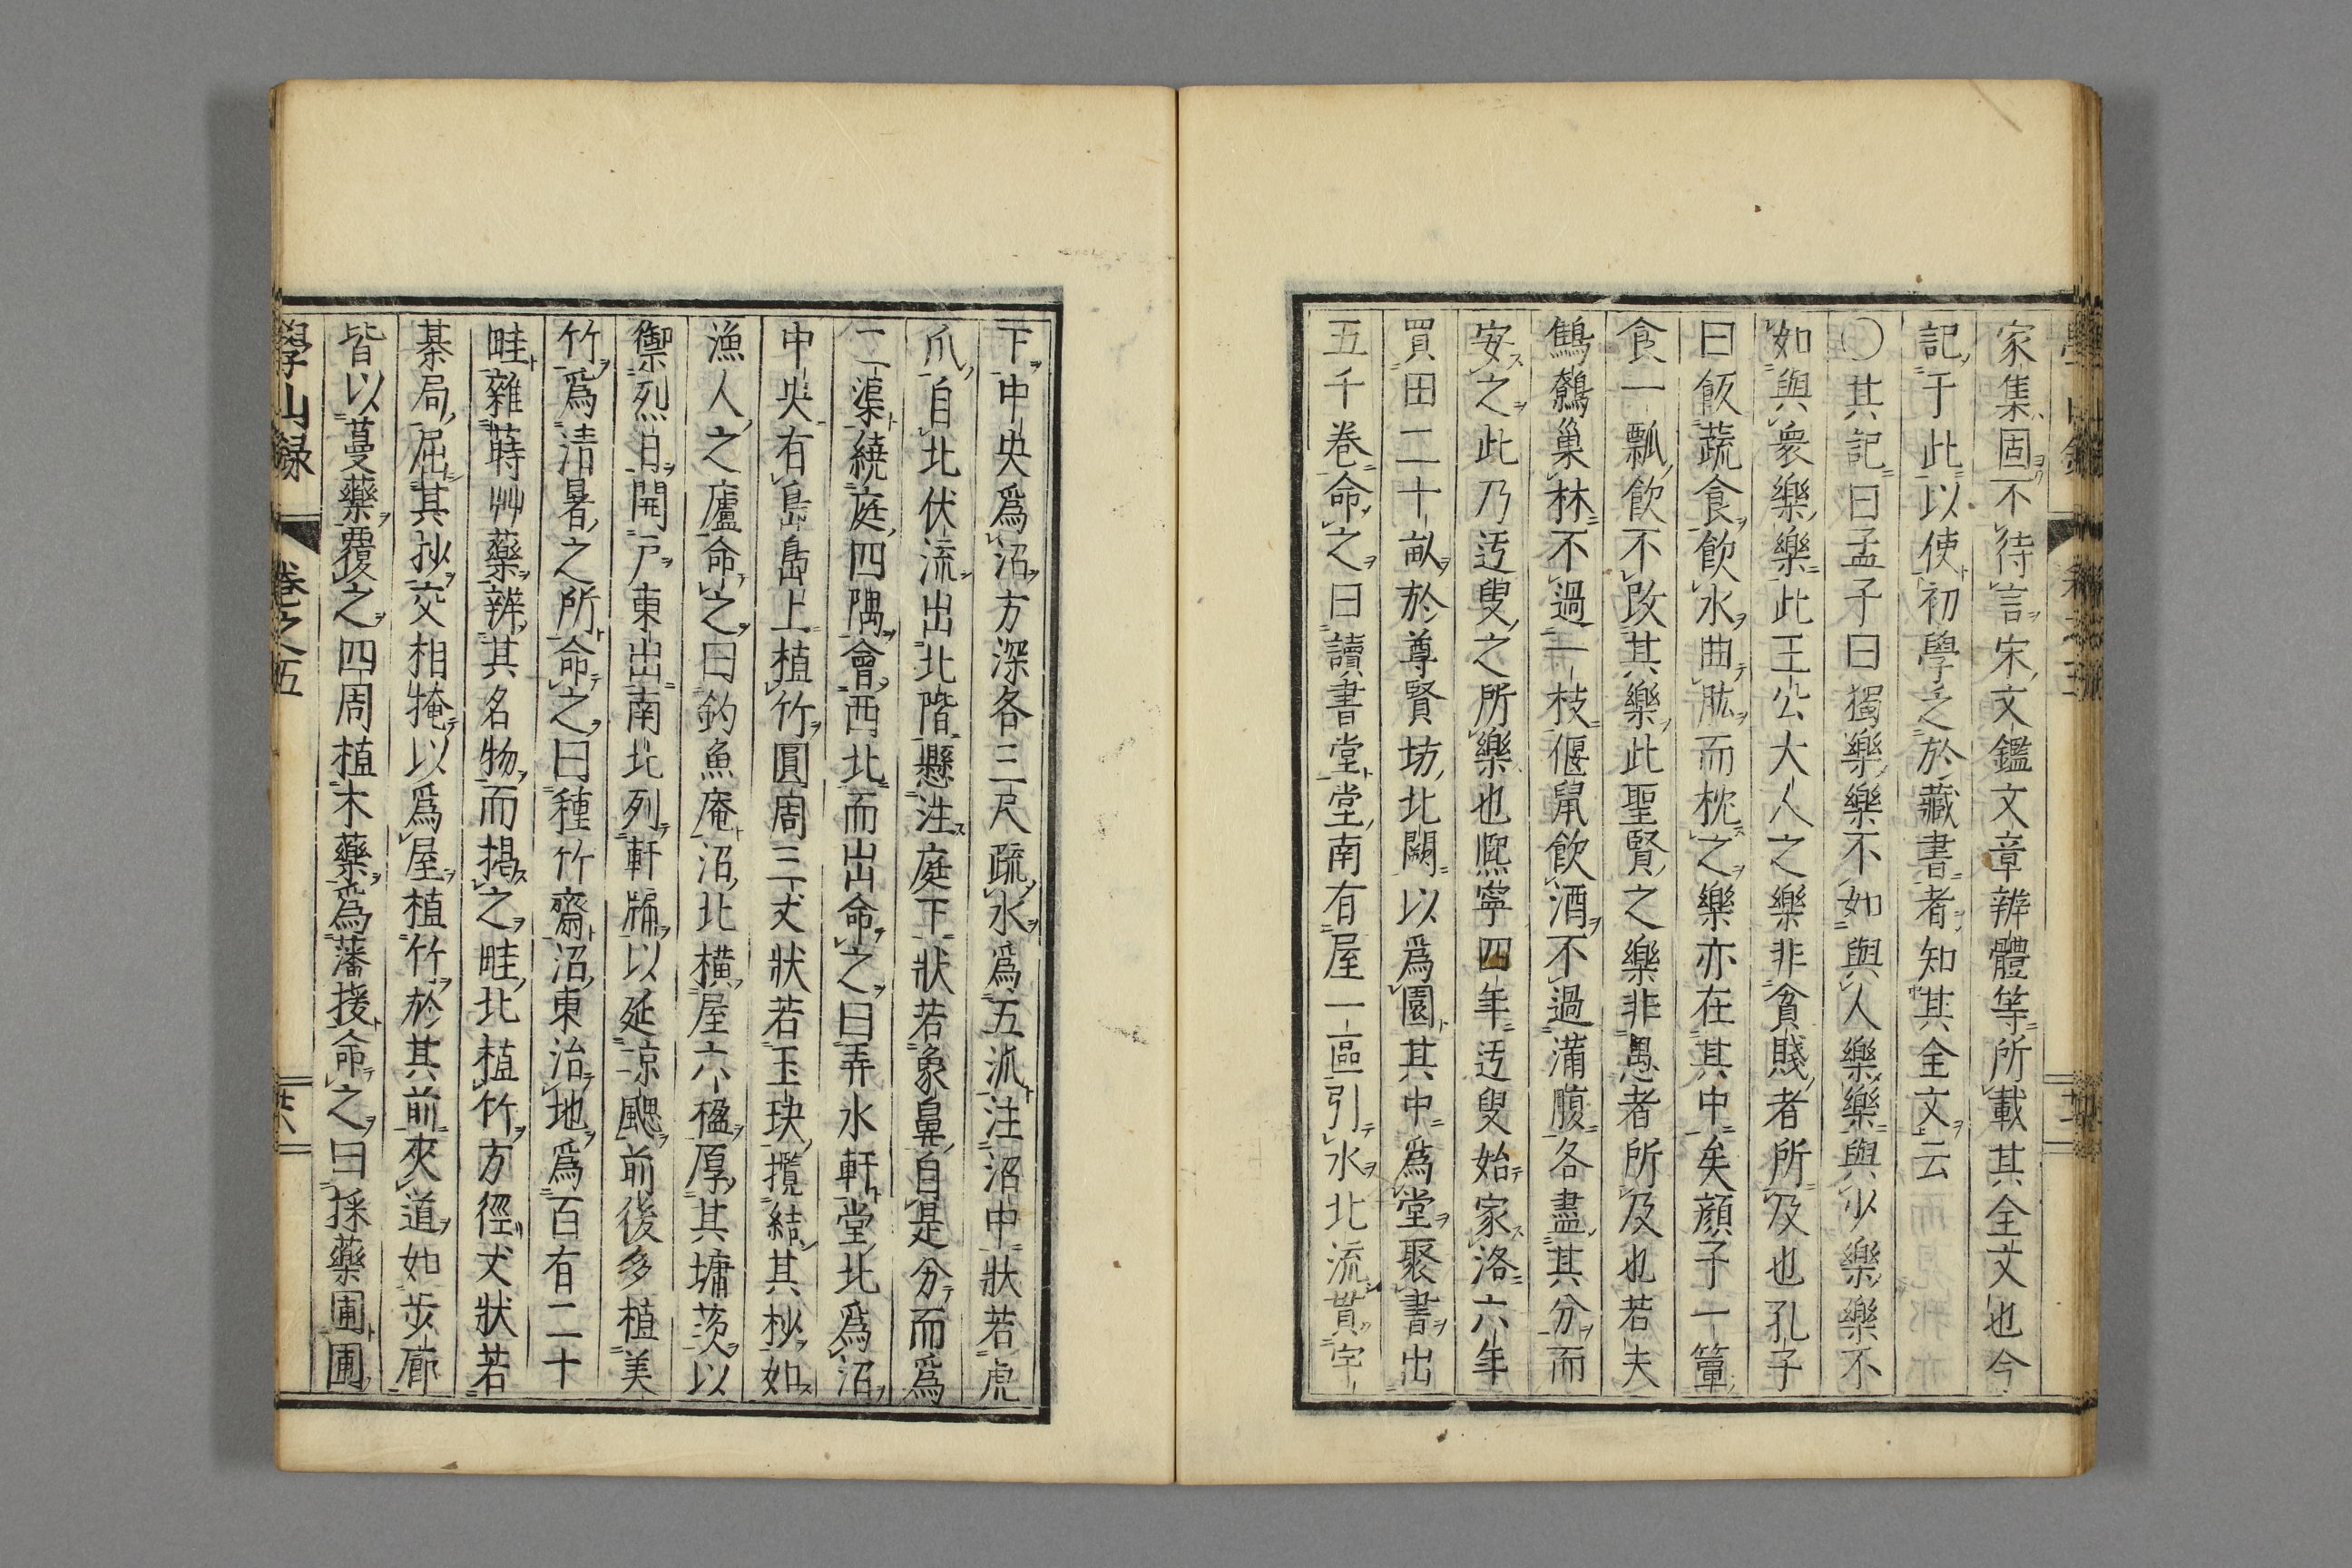 家集固不待言宋文鑑文章辨體等所載其全文也今
記于此以使初學乏於藏書者知其全文云
〇其記曰孟子曰獨樂樂不如與人樂樂與少樂樂不
如與衆樂樂此王公大人之樂非貧賤者所及也孔子
曰飯蔬食飲水曲肱而枕之樂亦在其中矣顔子一簞
食一瓢飲不改其樂此聖賢之樂非愚者所及也若夫
鷦鷯巢林不過一枝偃鼠飲酒不過滿腹各盡其分而
安之此乃迂叟之所樂也熈寧四年迂叟始家洛六年
買田二十畝於尊賢坊北闕以爲園其中爲堂聚書出
五千卷命之曰讀書堂堂南有屋一區引水北流貫宇
下中央爲沼方深各三尺疏水爲五派注沼中狀若虎
爪自北伏流出北階懸注庭下狀若象鼻自是分而爲
二渠繞庭四隅會西北而出命之曰弄水軒堂北爲沼
中央有島島上植竹圓周三丈狀若玉玦攬結其杪如
漁人之廬命之曰釣魚庵沼北横屋六楹厚其墉茨以
禦烈日開戸東出南北列軒牖以延凉颸前後多植美
竹爲淸暑之所命之曰種竹齋沼東治地爲百有二十
畦雜蒔艸藥辨其名物而揭之畦北植竹方徑丈狀若
棊局屈其杪交相掩以爲屋植竹於其前夾道如步廊
皆以蔓藥覆之四周植木藥爲藩援命之曰採藥圃圃
學山録 卷之五